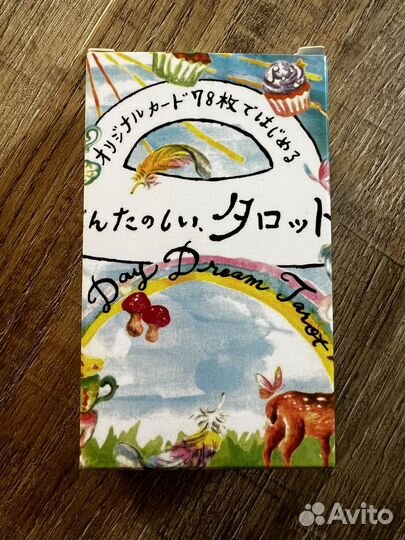 オリジナルカード78枚ではじめる
んたのしい、タロット
Day Dream Tarot
Avito